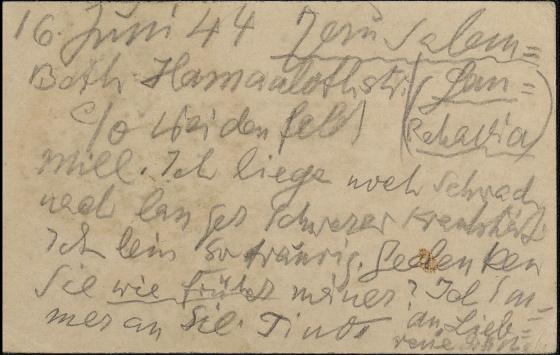 16. Juni 44 Jerusalem=
Beth Hamaalothstr. (Jan=
c/o Weidenfeld Rehavia)
Mill. Ich liege noch schwach
nach langer schwerer Krankheit.
Ich bin so traurig. Gedenken
Sie wie früher meiner? Ich im=
mer an Sie. Tinte
an Lieb=